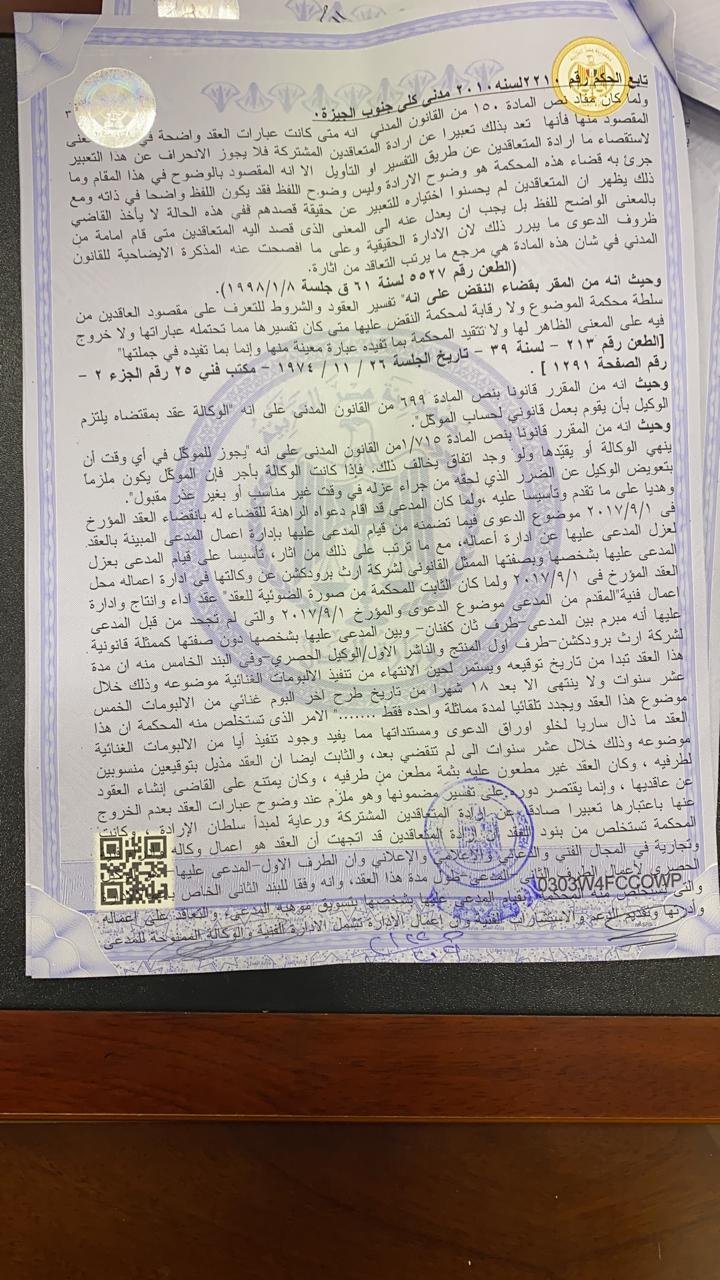 تابع الحكم رقم ٢٢١٠ لسنه ٢٠١٠ مدني كلي جنوب الجيزة.
٣
ولما كان مفاد نص المادة ١٥٠ من القانون المدني انه متى كانت عبارات العقد واضحة في
المقصود منها فأنها تعد بذلك تعبيرا عن ارادة المتعاقدين المشتركة فلا يجوز الانحراف عن هذا التعبير
لاستقصاء ما ارادة المتعاقدين عن طريق التفسير او التأويل الا انه المقصود بالوضوح في هذا المقام وما
جرئ به قضاء هذه المحكمة هو وضوح الارادة وليس وضوح اللفظ فقد يكون اللفظ واضحا في ذاته ومع
ذلك يظهر ان المتعاقدين لم يحسنوا اختياره للتعبير عن حقيقة قصدهم ففي هذه الحالة لا يأخذ القاضي
بالمعنى الواضح للفظ بل يجب ان يعدل عنه الى المعنى الذى قصد اليه المتعاقدين متى قام امامة من
ظروف الدعوى ما يبرر ذلك لان الادارة الحقيقية وعلى ما افصحت عنه المذكرة الايضاحية للقانون
المدني في شان هذه المادة هي مرجع ما يرتب التعاقد من اثارة.
(الطعن رقم ٥٥٢٧ لسنة ٦١ ق جلسة ١٩٩٨/١/٨).
وحيث انه من المقر بقضاء النقض على انه "تفسير العقود والشروط للتعرف على مقصود العاقدين من
سلطة محكمة الموضوع ولا رقابة لمحكمة النقض عليها متى كان تفسيرها مما تحتمله عباراتها ولا خروج
فيه على المعنى الظاهر لها ولا تتقيد المحكمة بما تفيده عبارة معينة منها وإنما بما تفيده في جملتها"
[الطعن رقم ٢١٣ - لسنة ٣٩ - تاريخ الجلسة ٢٦ / ١١ / ١٩٧٤ - مكتب فني ٢٥ رقم الجزء ٢ -
رقم الصفحة ١٢٩١ ] .
وحيث انه من المقرر قانونا بنص المادة ٦٩٩ من القانون المدنى على انه "الوكالة عقد بمقتضاه يلتزم
الوكيل بأن يقوم بعمل قانوني لحساب الموكل".
وحيث انه من المقرر قانونا بنص المادة ١/٧١٥من القانون المدنى على انه "يجوز للموكل في أي وقت أن
ينهي الوكالة أو يقيدها ولو وجد اتفاق يخالف ذلك. فإذا كانت الوكالة بأجر فإن الموكل يكون ملزماً
بتعويض الوكيل عن الضرر الذي لحقه من جراء عزله في وقت غير مناسب أو بغير عذر مقبول".
وهديا على ما تقدم وتأسيسا عليه ،ولما كان المدعى قد اقام دعواه الراهنة للقضاء له بانقضاء العقد المؤرخ
فى ٢٠١٧/٩/١ موضوع الدعوى فيما تضمنه من قيام المدعى عليها بإدارة اعمال المدعى المبينة بالعقد
لعزل المدعى عليها عن ادارة أعماله، مع ما ترتب على ذلك من اثار، تأسيسا على قيام المدعى بعزل
المدعى عليها بشخصها وبصفتها الممثل القانونى لشركة ارث برودكشن عن وكالتها فى ادارة اعماله محل
العقد المؤرخ فى ٢٠١٧/٩/١ ولما كان الثابت للمحكمة من صورة الضوئية للعقد" عقد اداء وانتاج وادارة
اعمال فنية"المقدم من المدعى موضوع الدعوى والمؤرخ ٢٠١٧/٩/١ والتى لم تجحد من قبل المدعى
عليها أنه مبرم بين المدعى-طرف ثان كفنان- وبين المدعى عليها بشخصها دون صفتها كممثلة قانونية
لشركة ارث برودكشن-طرف اول المنتج والناشر الاول/الوكيل الحصري-وفى البند الخامس منه ان مدة
هذا العقد تبدا من تاريخ توقيعه ويستمر لحين الانتهاء من تنفيذ الالبومات الغنائية موضوعه وذلك خلال
عشر سنوات ولا ينتهى الا بعد ١٨ شهرا من تاريخ طرح اخر البوم غنائي من الالبومات الخمس
موضوع هذا العقد ويجدد تلقائيا لمدة مماثلة وأحده فقط ......." الامر الذى تستخلص منه المحكمة ان هذا
العقد ما ذال ساريا لخلو اوراق الدعوى ومستنداتها مما يفيد وجود تنفيذ أيا من الالبومات الغنائية
موضوعه وذلك خلال عشر سنوات الى لم تنقضي بعد، والثابت ايضا ان العقد مذيل بتوقيعين منسوبين
لطرفيه ، وكان العقد غير مطعون عليه بثمة مطعن من طرفيه ، وكان يمتنع على القاضى إنشاء العقود
عن عاقديها ، وإنما يقتصر دوره على تفسير مضمونها وهو ملزم عند وضوح عبارات العقد بعدم الخروج
عنها باعتبارها تعبيرا صادقا عن إرادة المتعاقدين المشتركة ورعاية لمبدأ سلطان الإرادة ، وكانت
المحكمة تستخلص من بنود العقد أن إرادة المتعاقدين قد اتجهت أن العقد هو اعمال وكاله
وتجارية في المجال الفني والدعائي والاعلامي والإعلاني وان الطرف الاول-المدعى عليها-
الحصري لاعمال الطرف الثانى-المدعى-طول مدة هذا العقد، وانه وفقا للبند الثانى الخاص
والتى تستخلص منه المحكمة قيام المدعى عليها بشخصها بتسويق موهبه المدعى، والتعاقد على اعماله
وأدرتها وتقديم الدعم والاستشارات الفنية وان اعمال الإدارة تشمل الادارة الفنية والوكالة الممنوحة للمدعى
0303W4FCCOWP